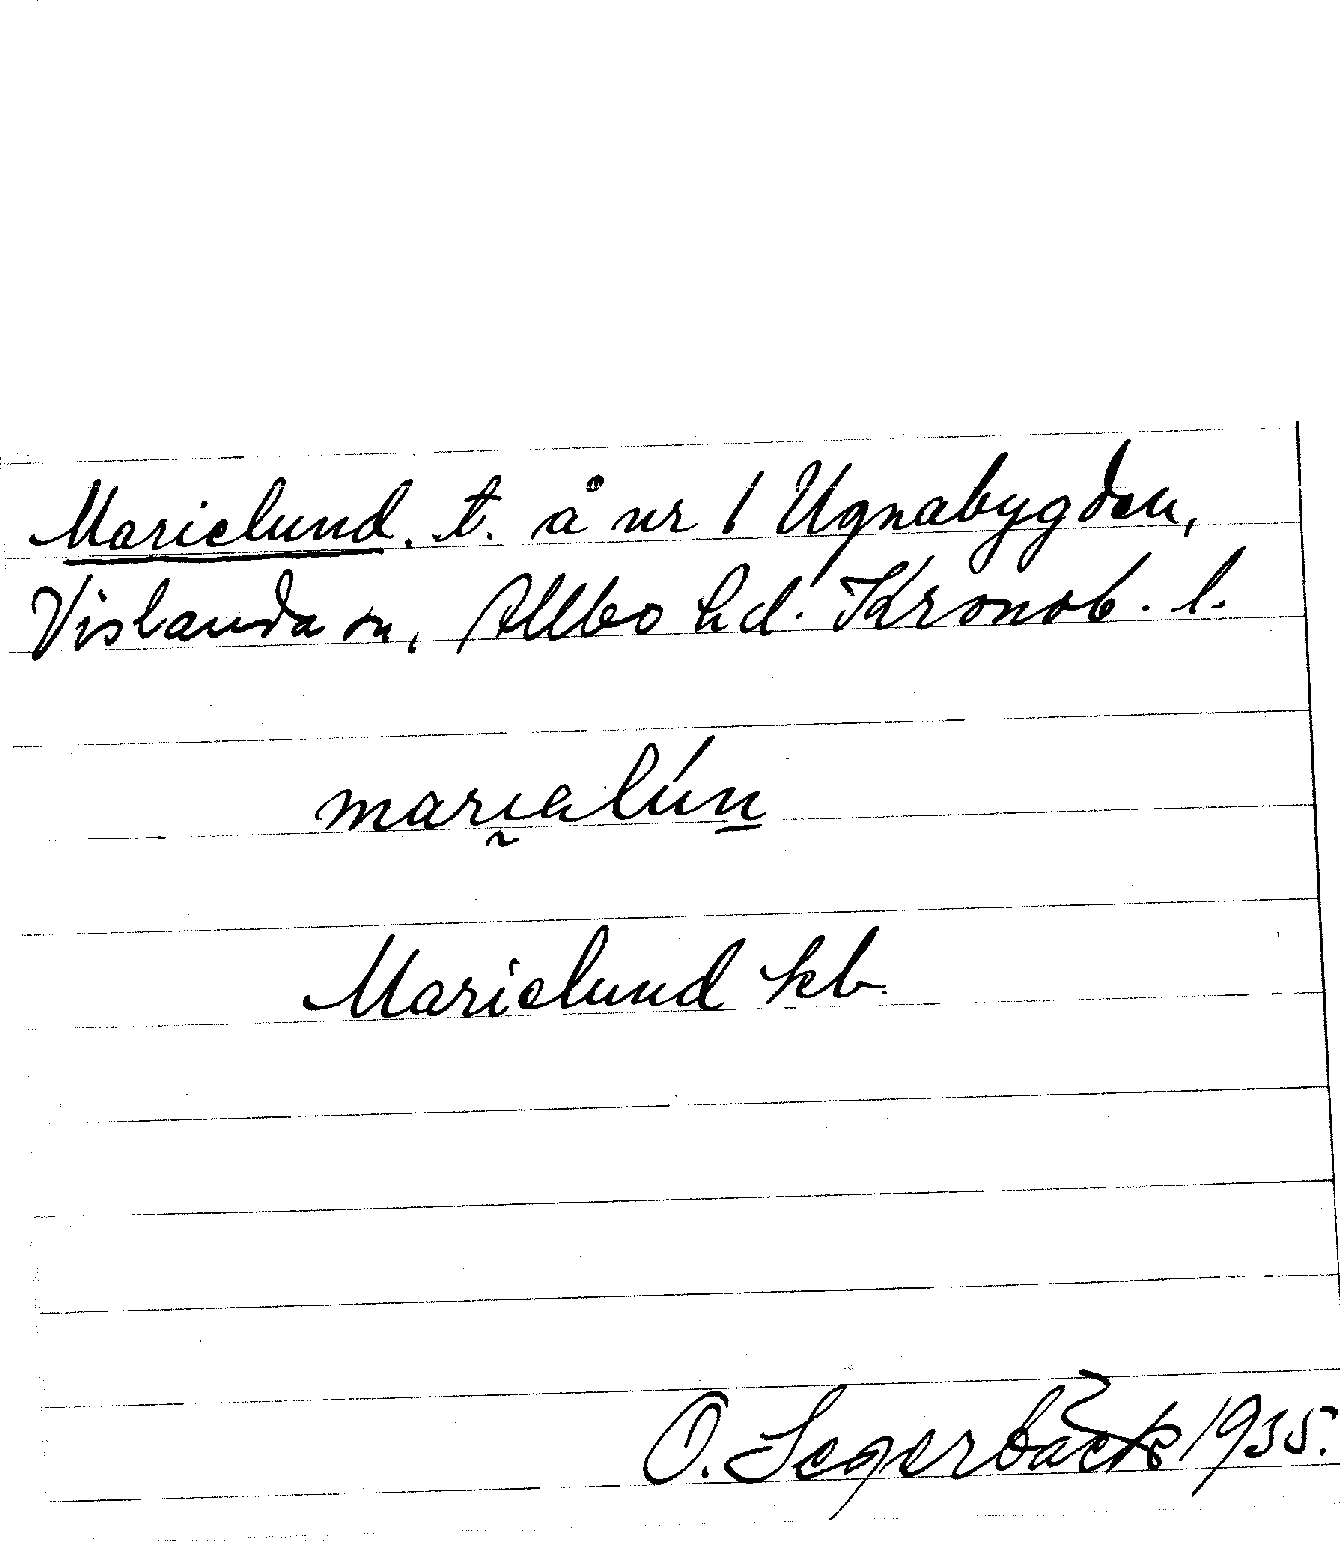 Marielund. t. å nr 1 Ugnabygden,
Vislanda sn, Allbo hd. Kronob. l.
marı̰alún̲
Marielund kb.
O. Segerbäck 1935.